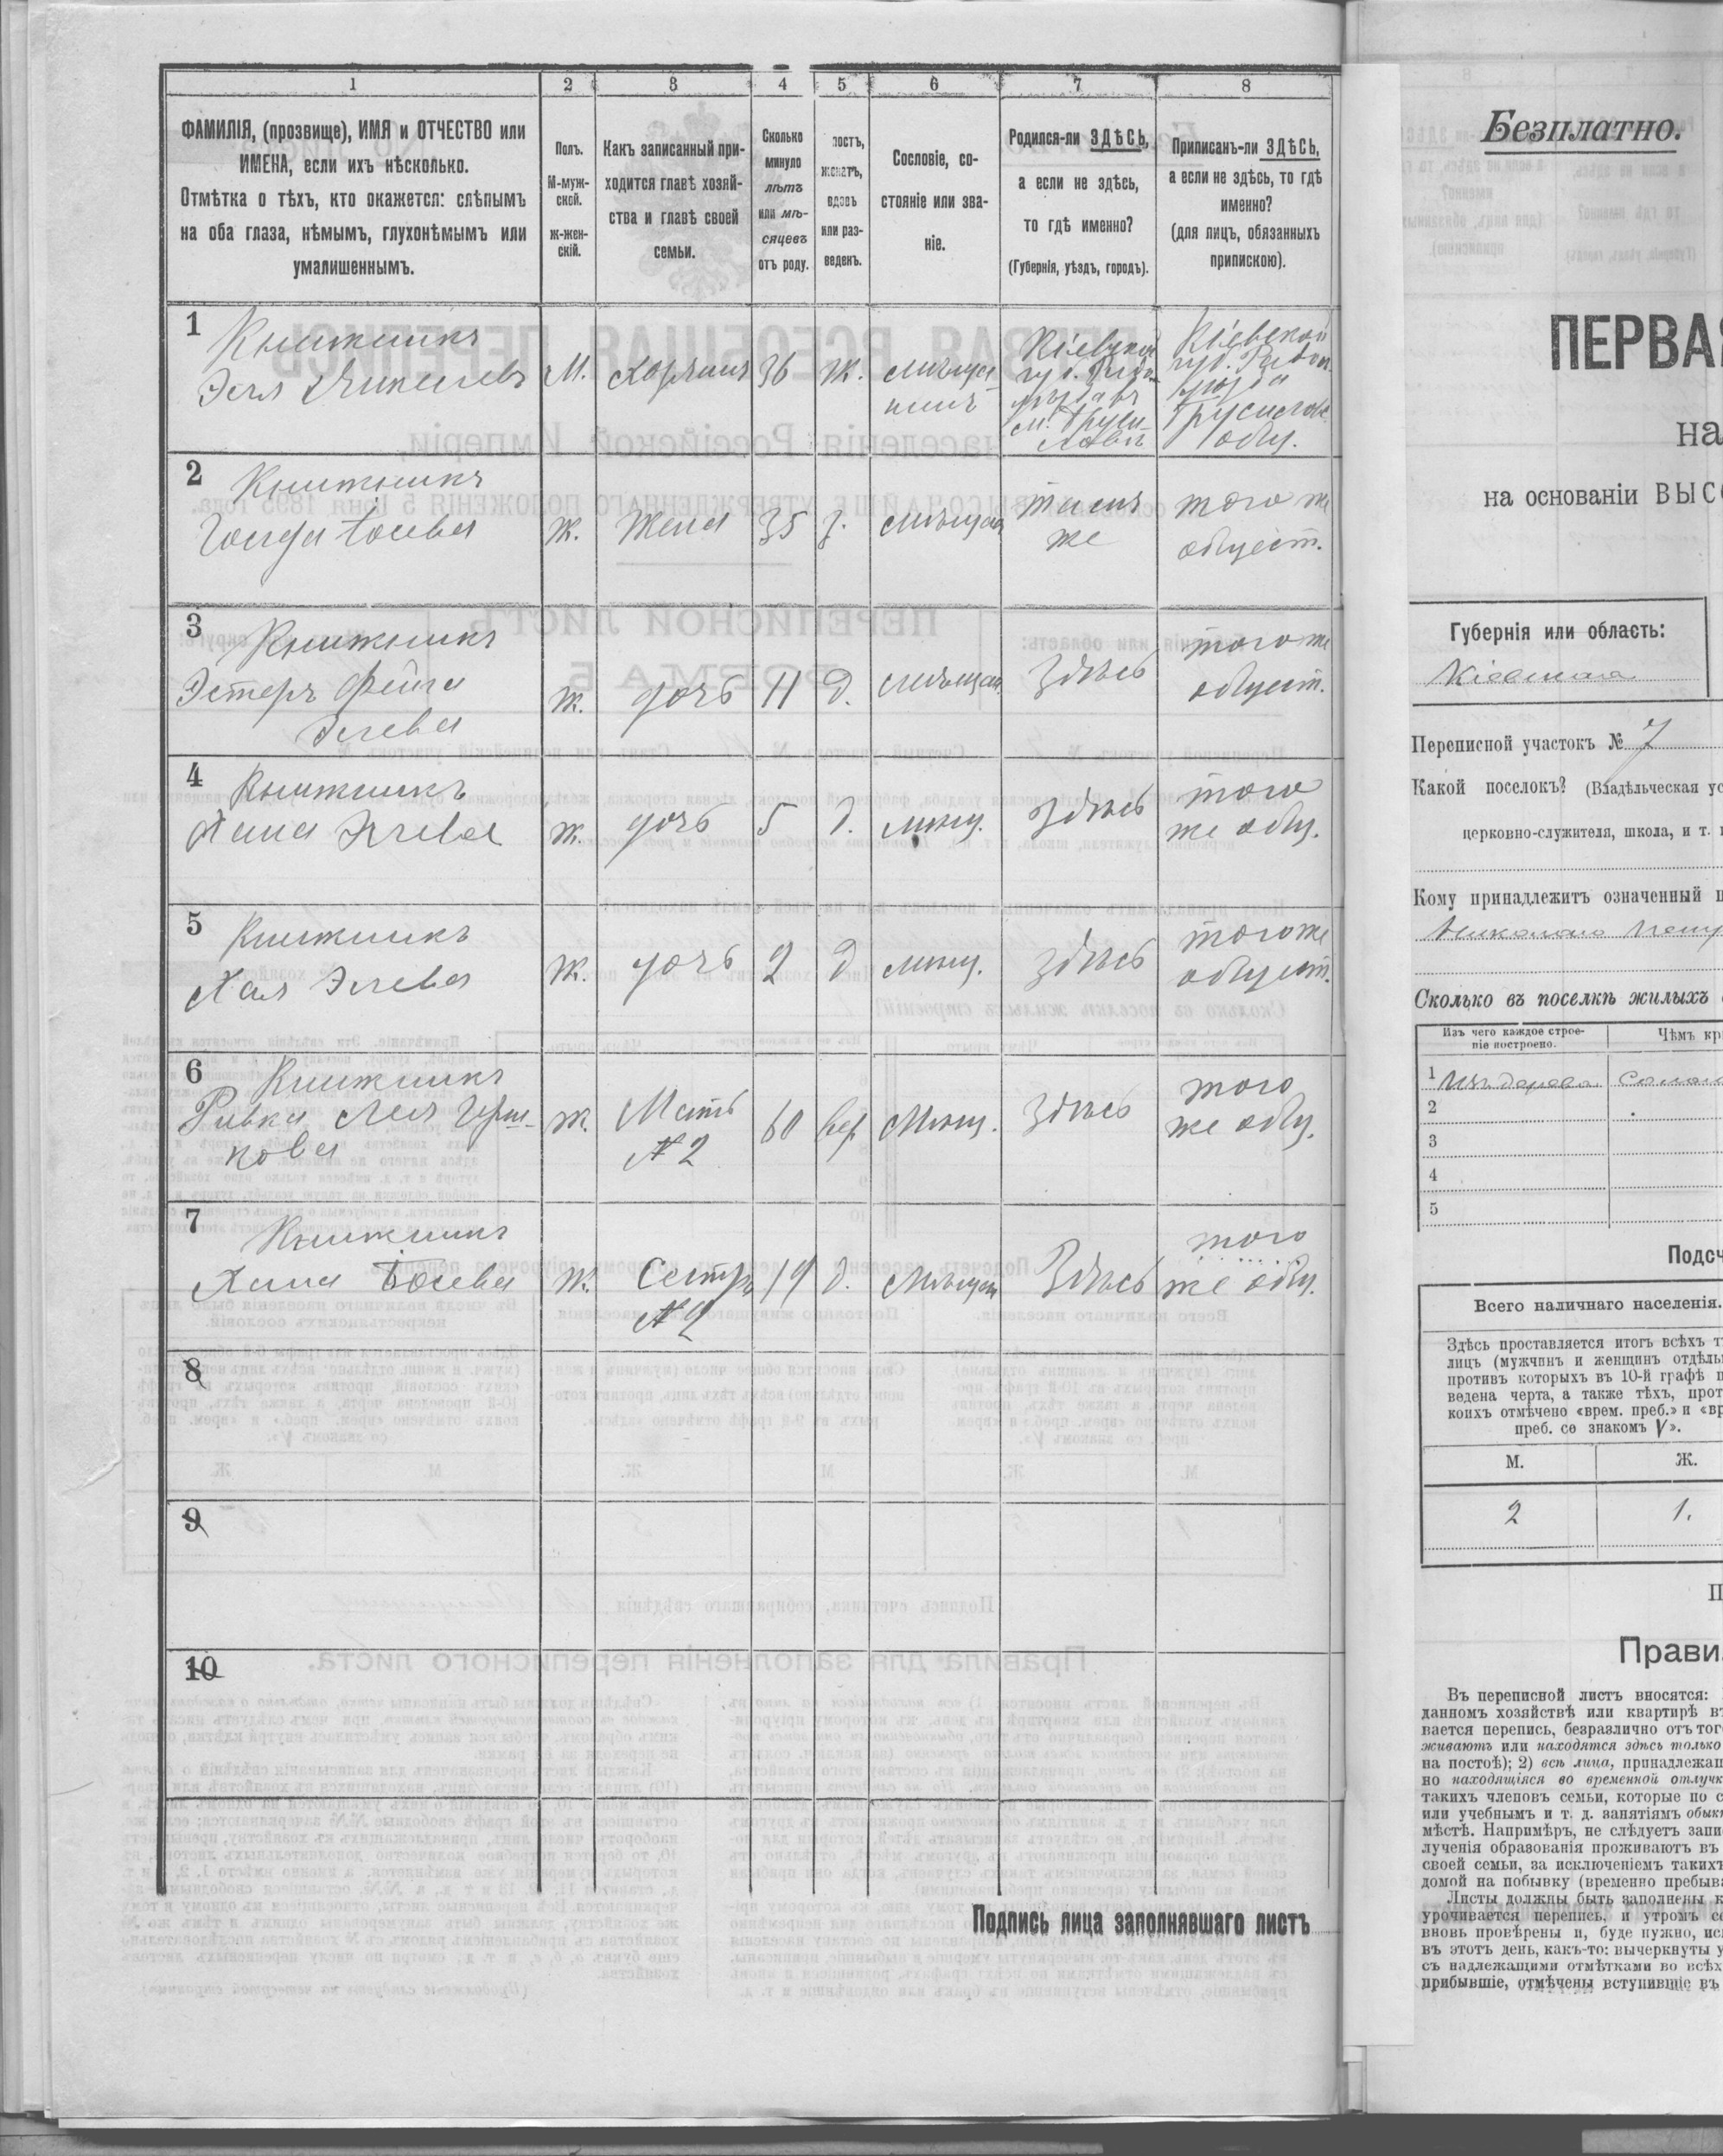 1
2
3
4
5
6
7
8
ФАМИЛІЯ, (прозвище), ИМЯ и ОТЧЕСТВО или
ИМЕНА, если ихъ нѣсколько.
Отмѣтка о тѣхъ, кто окажется: слѣпымъ
на оба глаза, нѣмымъ, глухонѣмымъ или
умалишеннымъ.
Полъ.
М-муж-
ской.
ж-жен-
скій.
Какъ записанный при-
ходится главѣ хозяй-
ства и главѣ своей
семьи.
Сколько
минуло
лѣтъ
или мѣ-
сяцевъ
отъ роду.
лостъ,
женатъ,
вдовъ
или раз-
веденъ.
Сословіе, со-
стояніе или зва-
ніе.
Родился-ли ЗДѢСЬ,
а если не здѣсь,
то гдѣ именно?
(Губернія, уѣздъ, городъ).
Приписанъ-ли ЗДѢСЬ,
а если не здѣсь, то гдѣ
именно?
(для лицъ, обязанныхъ
припискою).
1
Книжникъ
Эля
М.
36
ж.
мѣща
нинъ
Кіевской
губ.
Кіевской
губ.
уѣзда
общ.
2
Книжникъ
Ж.
Жена
35
з.
мѣщан
тамъ
же
того же
общест.
3
Книжникъ
Эстеръ Фейга
Элева
ж.
дочь
11
д.
мѣщан.
здѣсь
того же
общест.
4
Книжникъ
Хана Элева
ж.
дочь
5
д.
мѣщ.
здѣсь
того
же общ.
5
Книжникъ
Хая Элева
ж.
дочь
2
д
мѣщ.
здѣсь
того же
общест.
6
Книжникъ
Ривка Лея Герш-
кова
ж.
Мать
№ 2
60
вд
Мѣщ.
здѣсь
того
же общ.
7
Книжникъ
Хана Іосева
ж.
Сестра
№ 2
19
д.
мѣщан
Здѣсь
того
же общ.
8
9
10
Подпись лица заполнявшаго листъ
Безплатно.
ПЕРВАЯ
на
на основаніи ВЫСО
Губернія или область:
Кіевская
Переписной участокъ № 7
Какой поселокъ? (Владѣльческая ус
церковно-служителя, школа, и т.
Кому принадлежитъ означенный п
Николаю
Сколько въ поселкѣ жилыхъ
Изъ чего каждое строе-
ніе построено.
Чѣмъ кр
1 Изъ дерева
солом
2
3
4
5
Подсч
Всего наличнаго населенія.
Здѣсь проставляется итогъ всѣхъ т
лицъ (мужчинъ и женщинъ отдѣль
противъ которыхъ въ 10-й графѣ п
ведена черта, а также тѣхъ, прот
коихъ отмѣчено «врем. преб.» и «вр
преб. со знакомъ V».
М.
Ж.
2
1.
П
Прави
Въ переписной листъ вносятся:
данномъ хозяйствѣ или квартирѣ въ
вается перепись, безразлично отъ тог
живаютъ или находятся здѣсь только
на постоѣ); 2) всѣ лица, принадлежащ
но находящіяся во временной отлучк
такихъ членовъ семьи, которые по с
или учебнымъ и т. д. занятіямъ обык
мѣстѣ. Напримѣръ, не слѣдуетъ запи
лученія образованія проживаютъ въ
своей семьи, за исключеніемъ такихъ
домой на побывку (временно пребыва
Листы должны быть заполнены к
урочивается перепись, и утромъ со
вновь провѣрены и, буде нужно, исп
въ этотъ день, какъ-то: вычеркнуты у
съ надлежащими отмѣтками во всѣх
прибывшіе, отмѣчены вступившіе въ